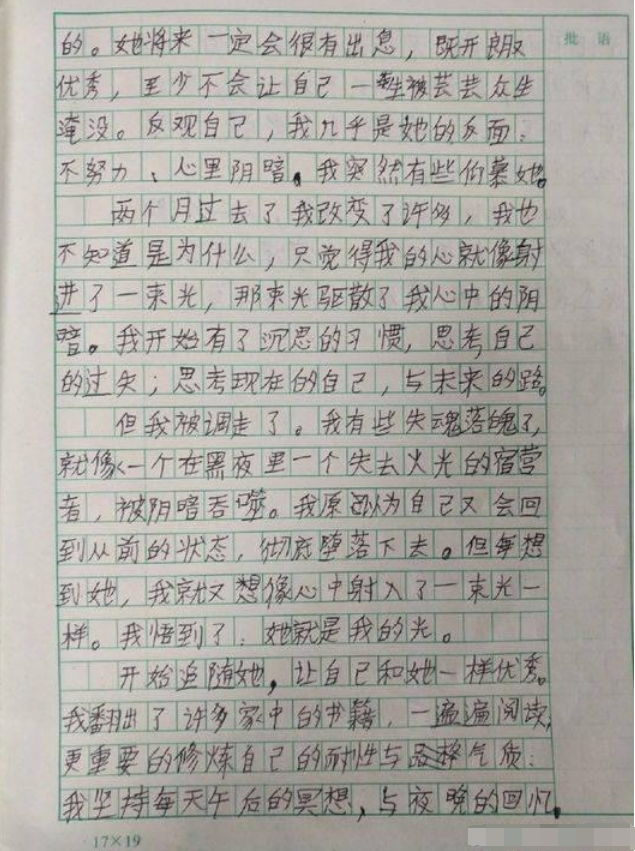 批语
的。她将来一定会很有出息，既开朗又
优秀，至少不会让自己一生被芸芸众生
淹没。反观自己，我几乎是她的反面：
不努力、心里阴暗。我突然有些仰慕她。
两个月过去了我改变了许多，我也
不知道是为什么，只觉得我的心就像射
进了一束光，那束光驱散了我心中的阴
暗。我开始有了沉思的习惯，思考自己
的过失；思考现在的自己，与未来的路。
但我被调走了。我有些失魂落魄了，
就像一个在黑夜里一个失去火光的宿营
者，被阴暗吞噬。我原以为自己又会回
到从前的状态，彻底堕落下去。但每想
到她，我就又想像心中射入了一束光一
样。我悟到了：她就是我的光。
开始追随她，让自己和她一样优秀。
我翻出了许多家中的书籍，一遍遍阅读，
更重要的修炼自己的耐性与品格气质：
我坚持每天午后的冥想，与夜晚的回忆。
17×19